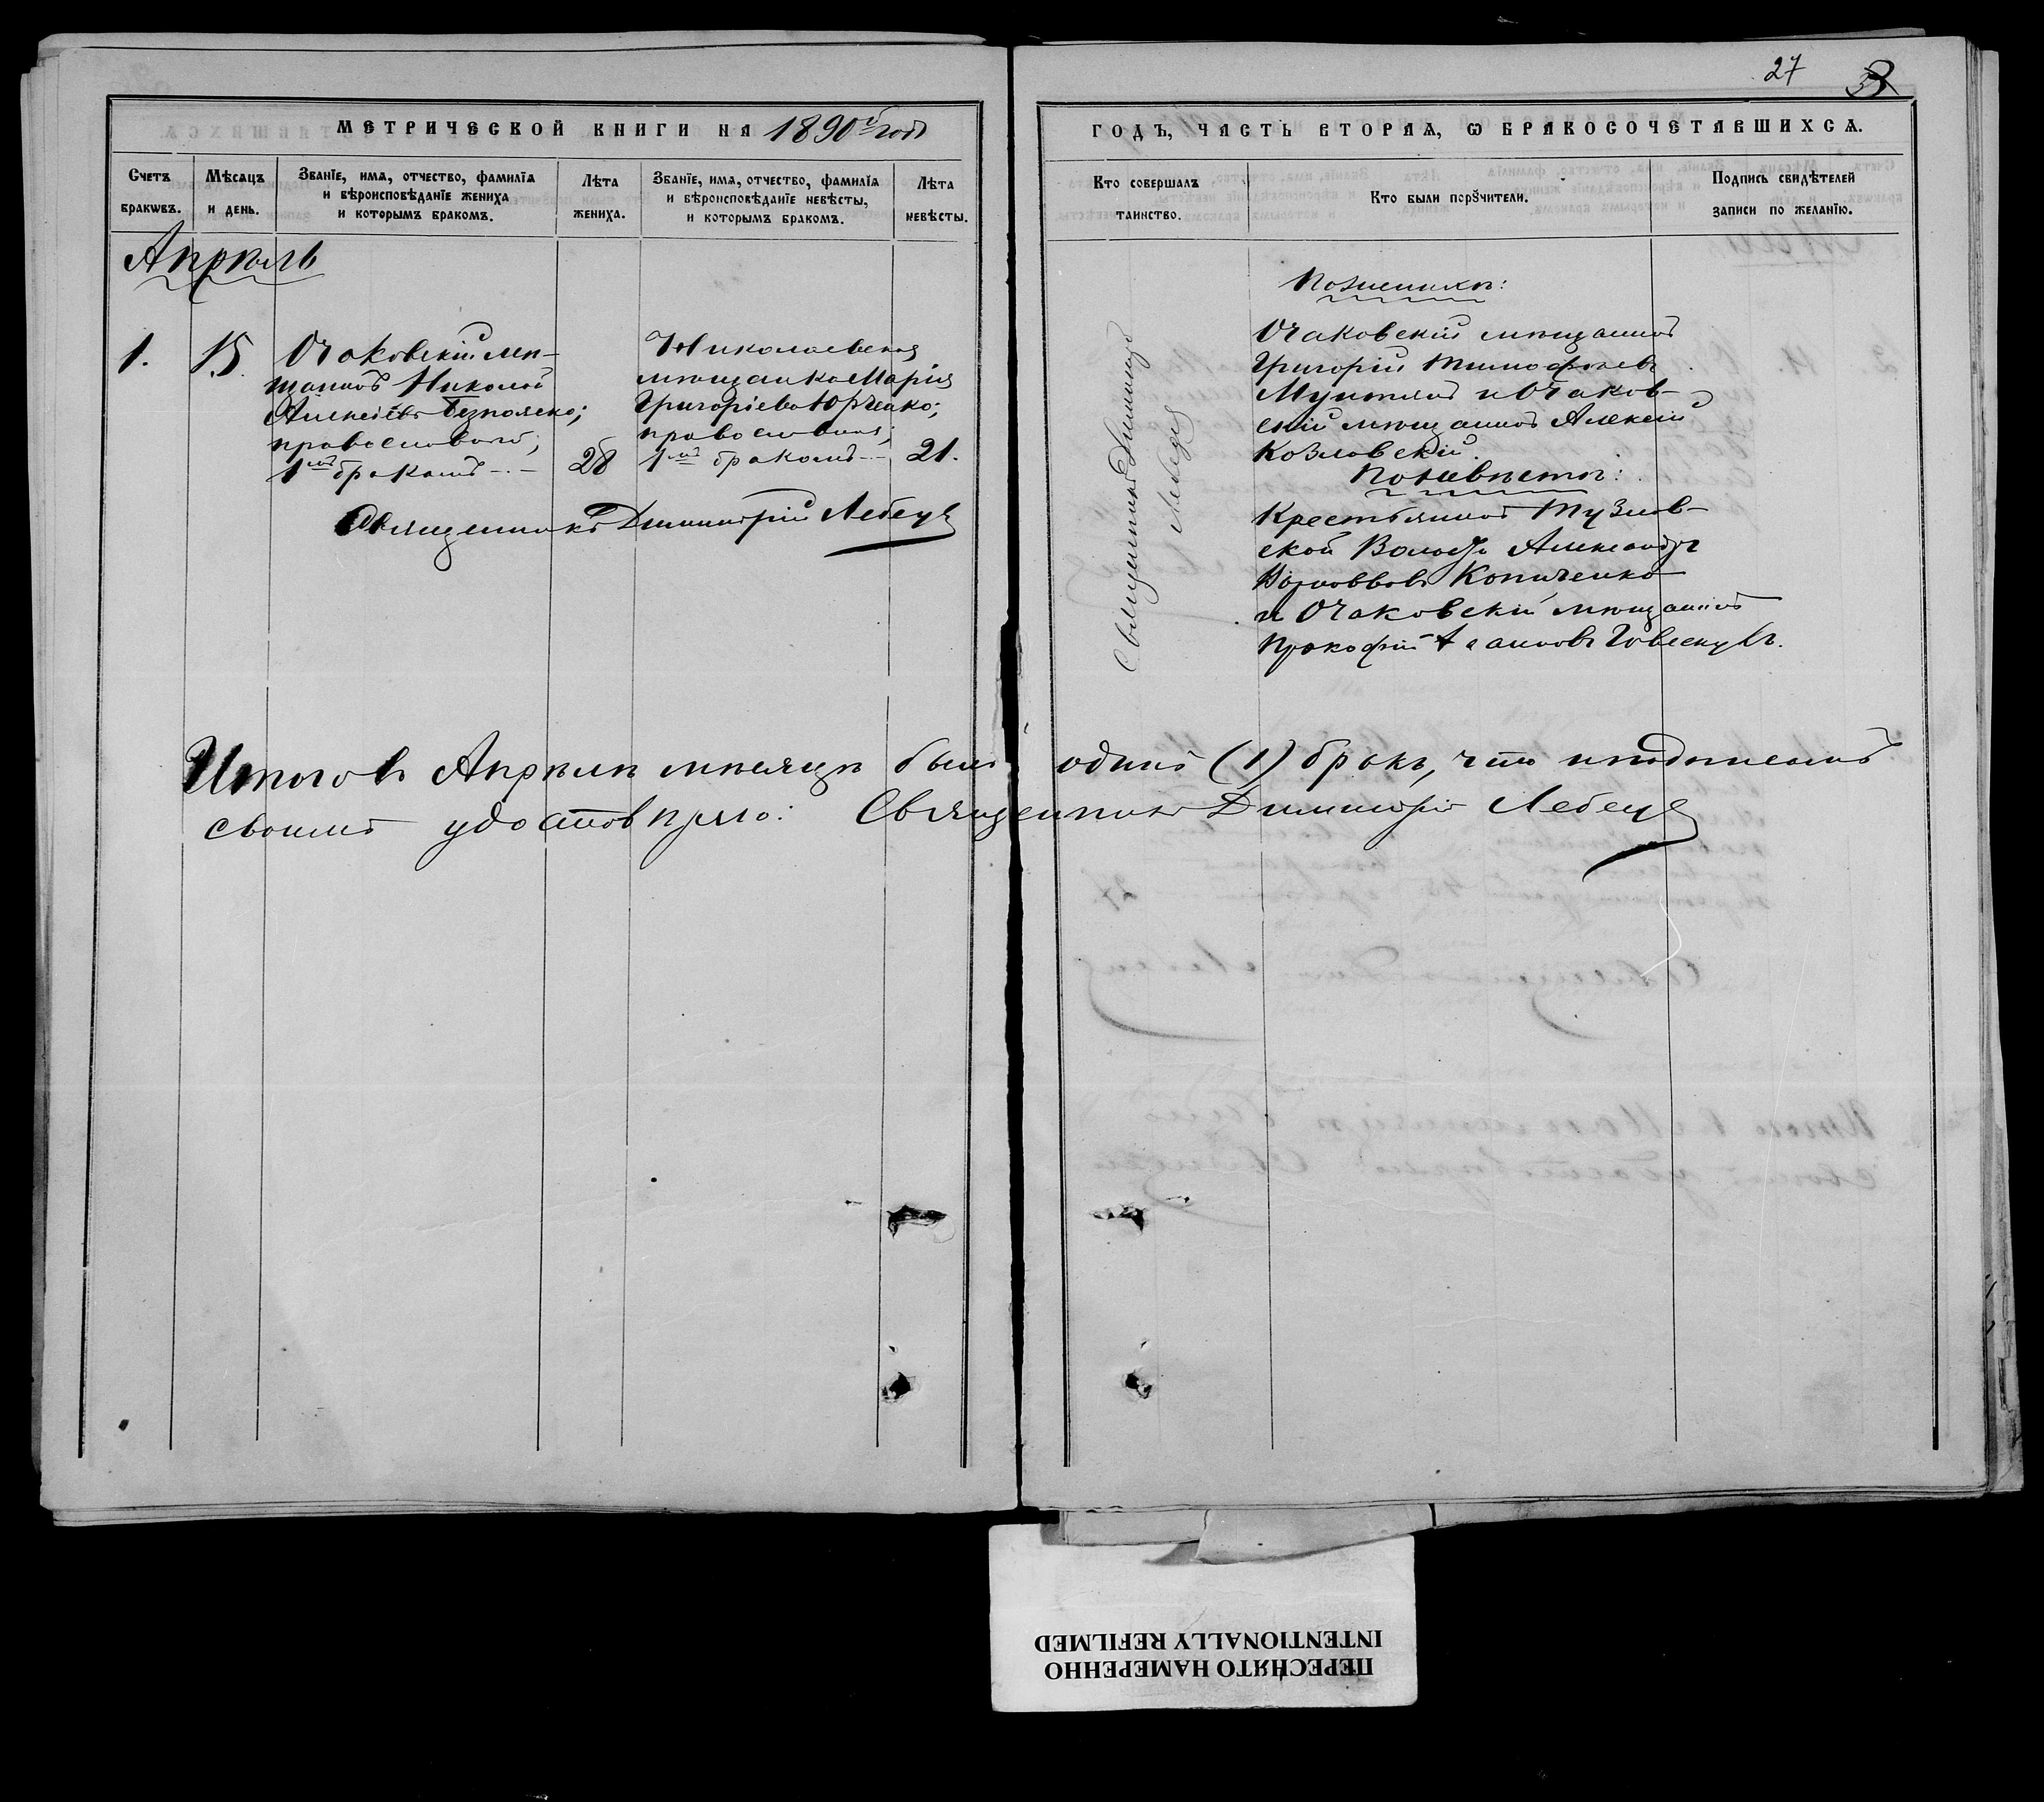 27 3
МЕТРИЧЕСКОЙ КНИГИ НА 1890й годъ
Счетъ браковъ.
Мѣсяцъ и день.
Званіе, имя, отчество, фамилія и вѣроисповѣданіе жениха и которымъ бракомъ.
Лѣта жениха.
Званіе, имя, отчество, фамилія и вѣроисповѣданіе невѣсты, и которымъ бракомъ.
Лѣта невѣсты.
Апрѣль
1. 15.
Очаковскій мѣ-
щанинъ Николай
Алексѣевъ
православный;
1мъ бракомъ
28
Николаевская
мѣщанка Марія
Григорьева Юрченко;
православная;
1мъ бракомъ
21.
Священникъ Димитрій Лебедь
ГОДЪ, ЧАСТЬ ВТОРАЯ, Ѡ БРАКОСОЧЕТАВШИХСЯ.
Кто совершалъ таинство.
Кто были порꙋчители.
Подпись свидѣтелей записи по желанію.
Священникъ Димитрій
Лебедь
По женихѣ:
Очаковскій мѣщанинъ
Григорій Тимофѣевъ
и Очаков-
скій мѣщанинъ Алексѣй
Козловскій.
По невѣстѣ:
Крестьянинъ Тузлов-
ской Волости Александръ
Копиченко
и Очаковскій мѣщанинъ
Прокофій
Итого въ Апрѣлѣ мѣсяцѣ былъ одинъ (1) бракъ, что и подписомъ
своимъ удостовѣряю: Священникъ Димитрій Лебедь
ПЕРЕСНЯТО НАМЕРЕННО
INTENTIONALLY REFILMED